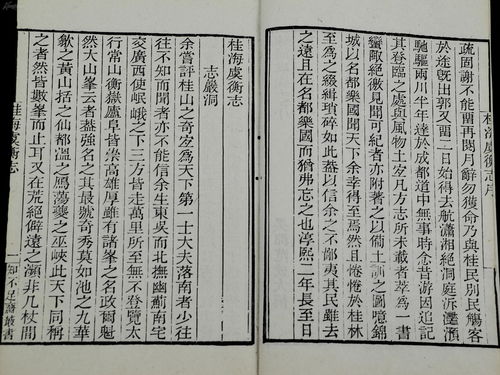 桂海虞衡志序
疏固謝不能畱再閱月辭勿獲命乃與桂民別民觴客
於途旣出郭又畱二日始得去航瀟湘絕洞庭泝灔澦
馳驅兩川半年達於成都道中無事時念昔游因追記
其登臨之處與風物土宜凡方志所未載者萃爲一書
蠻陬絕徼見聞可紀者亦附著之以備土訓之圖噫錦
城以名都樂國聞天下余幸得至焉然且惓惓於桂林
至爲之綴緝瑣碎如此蓋以信余之不鄙夷其民雖去
之遠且在名都樂國而猶弗忘之也淳熙二年長至日
桂海虞衡志
志巖洞
余嘗評桂山之奇宜爲天下第一士大夫落南者少往
往不知而聞者亦不能信余生東吳而北撫幽薊南宅
交廣西使岷峨之下三方皆走萬里所至無不登覽太
行常山衡嶽廬阜皆崇高雄厚雖有諸峯之名政爾魁
然大山峯云者蓋強名之其最號奇秀莫如池之九華
歙之黃山括之仙都溫之鴈蕩夔之巫峽此天下同稱
之者然皆數峯而止耳又在荒絕僻遠之瀕非几杖間
桂海虞衡志
一
知不足齋叢書